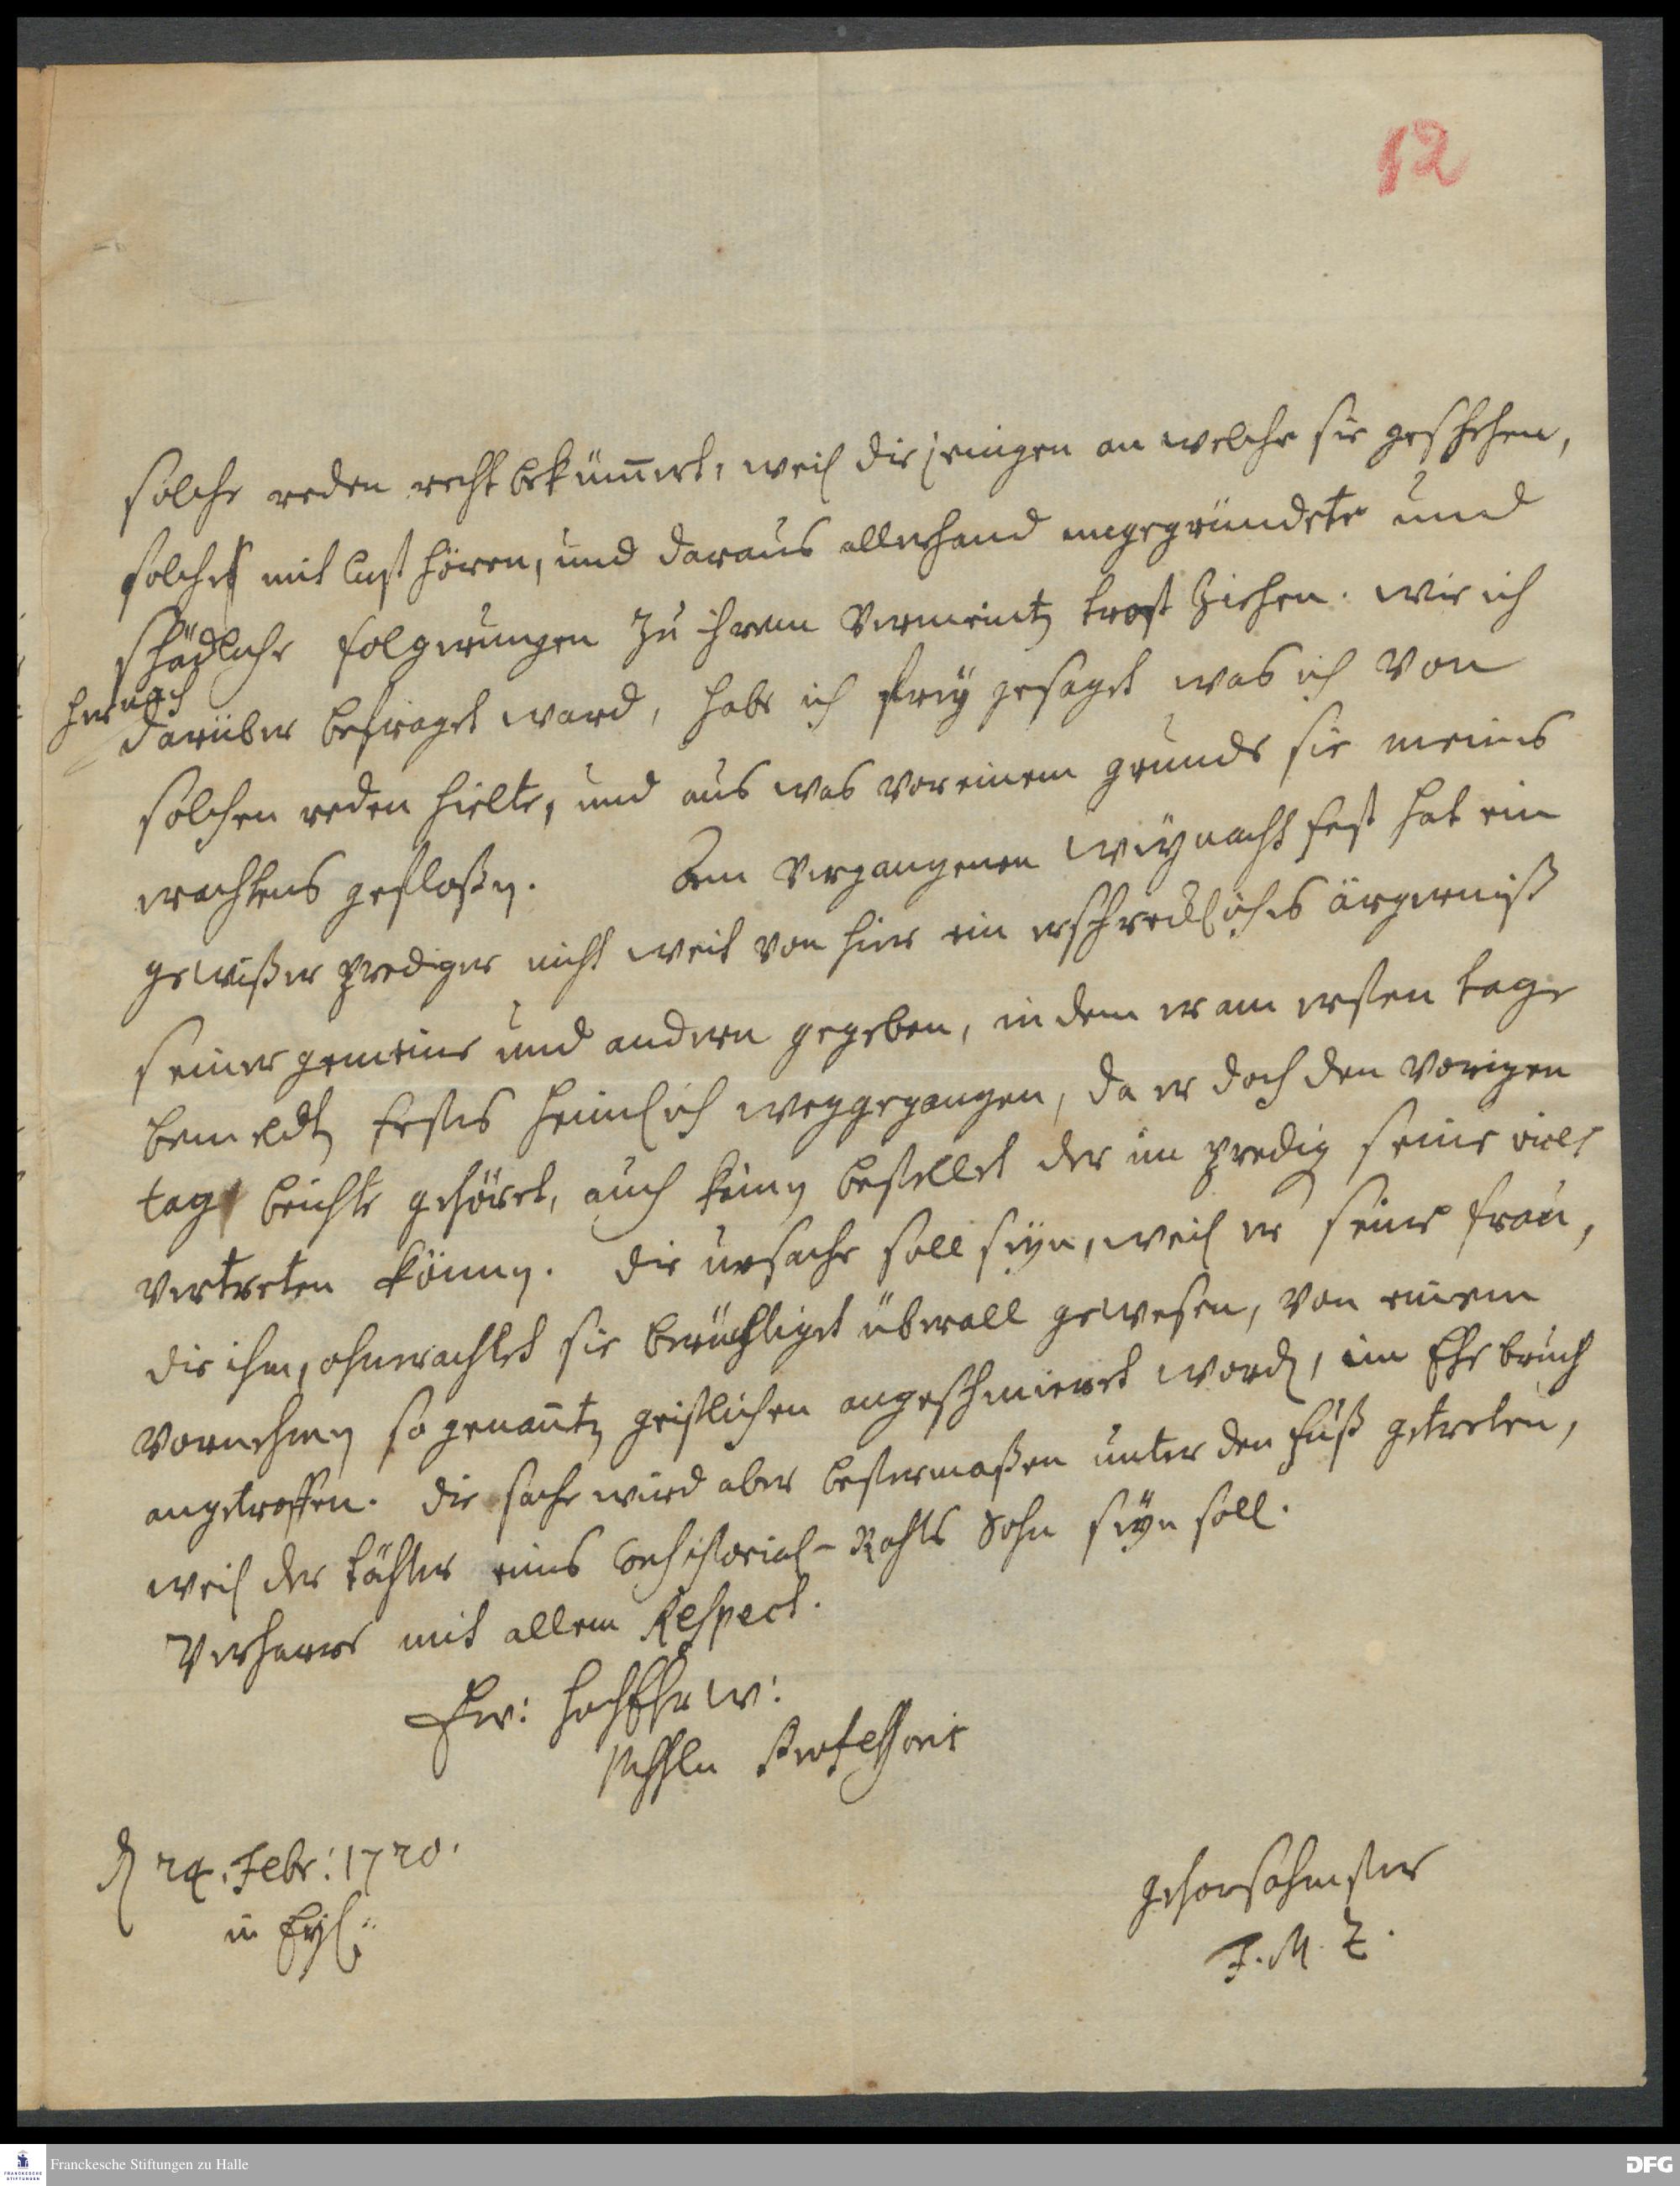 12
solche reden recht bekümmert, weil die jenigen an welche sie geschehen,
solches mit lust hören, und daraus allerhand ungegründete und
schädliche folgerungen zu ihrem vermeintn trost ziehen. wie ich
hernach
darüber befraget ward, habe ich frey gesaget was ich von
solchen reden hielte, und aus was vor einem grunde sie meines
erachtens gefloßen. Am vergangenen weynacht fest hat ein
gewißer prediger nicht weit von hier ein erschrecklichs ärgerniß
seiner gemeine und andern gegeben, in dem er am ersten tage
bemeldtn festes heimlich weggegangen, da er doch den vorigen
tag beichte gehöret, auch keinen bestellet der im predig seine
vertreten können. die ursache soll seyn, weil er seine frau,
die ihm, ohnerachtet sie berüchtiget überall gewesen, von einem
vornehmen so genantn geistlichen angeschmieret worden, im Ehebruch
angetroffen. die sache wird aber bestermaßen unter den fuß getreten,
weil der thäter eines Consistorial-Rahts Sohn seyn soll.
Verharre mit allem Respect.
Ew: HochEhrw:
Professoris
d 24. Febr: 1720.
in
gehorsahmster
F. M. Z.
Franckesche Stiftungen zu Halle
DFG